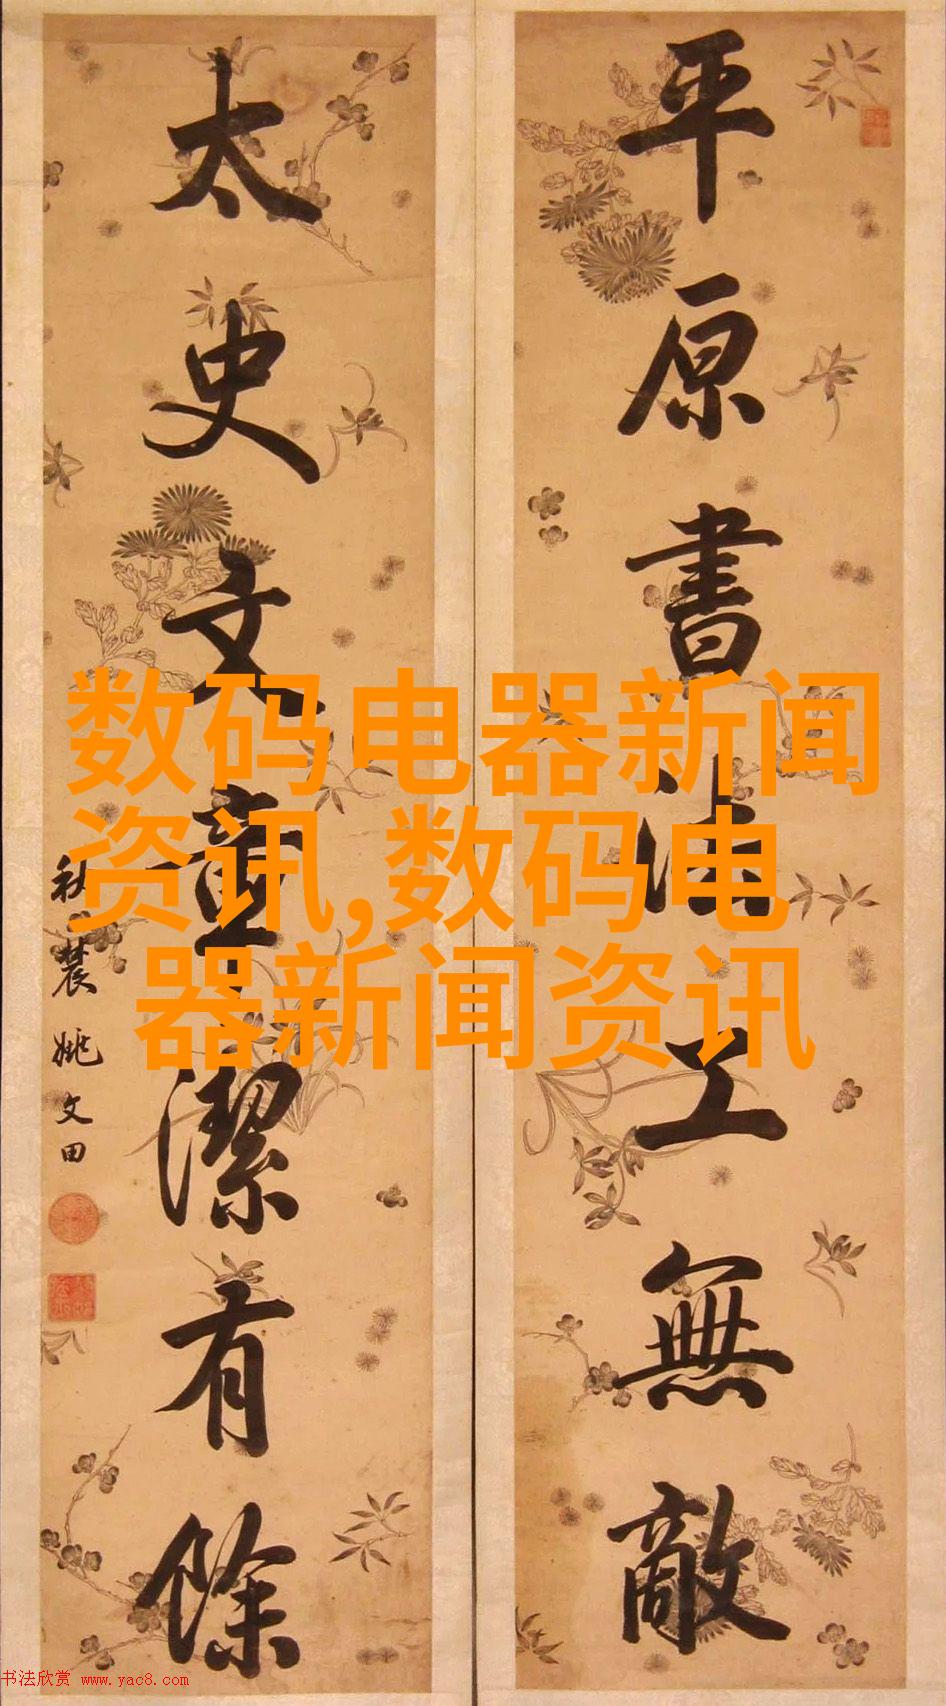 平原書法工無敵
太史文章潔有餘
秋農姚文田
数码电器新闻
资讯,数码电
器新闻资讯
书法欣赏 www.yac8.com